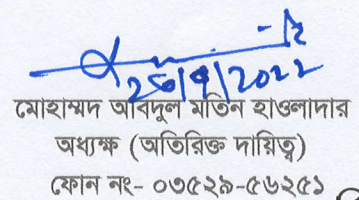 মোহাম্মদ আবদুল মতিন হাওলাদার
অধ্যক্ষ (অতিরিক্ত দায়িত্ব)
ফোন নং- ০৩৫২৯-৫৬২৫১